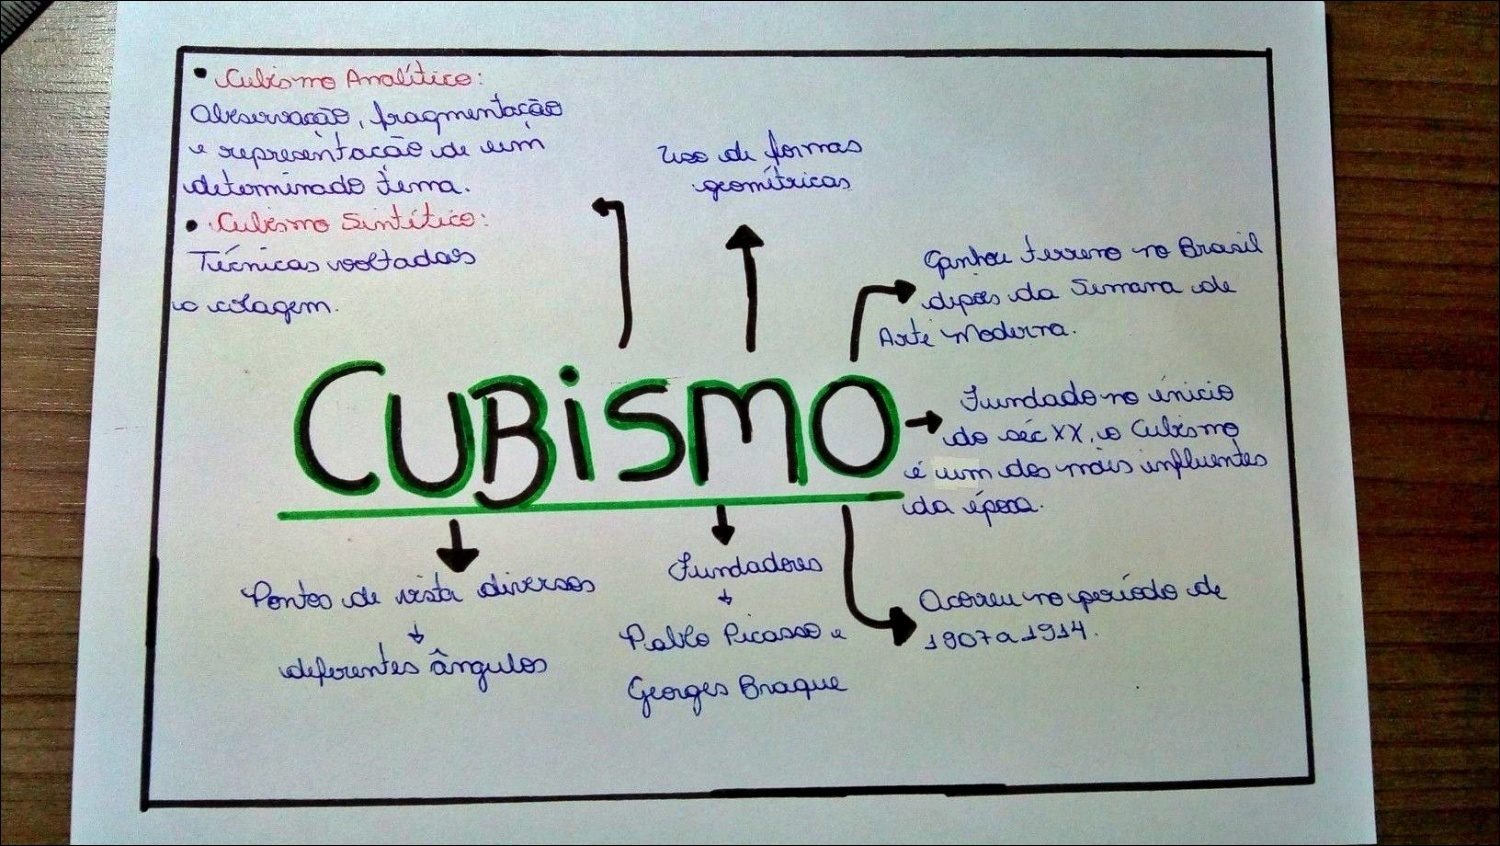 • Cubismo Analítico:
Observação, fragmentação
e representação de um
determinado tema.
• Cubismo Sintético:
Técnicas voltadas
a colagem.
Uso de formas
geométricas
Ganhou terreno no Brasil
depois da Semana de
Arte Moderna.
CUBISMO
Fundado no início
do séc XX, o Cubismo
é um dos mais influentes
da época.
Pontos de vista diversos
diferentes ângulos
Fundadores
Pablo Picasso e
Georges Braque
Ocorreu no período de
1907 a 1914.